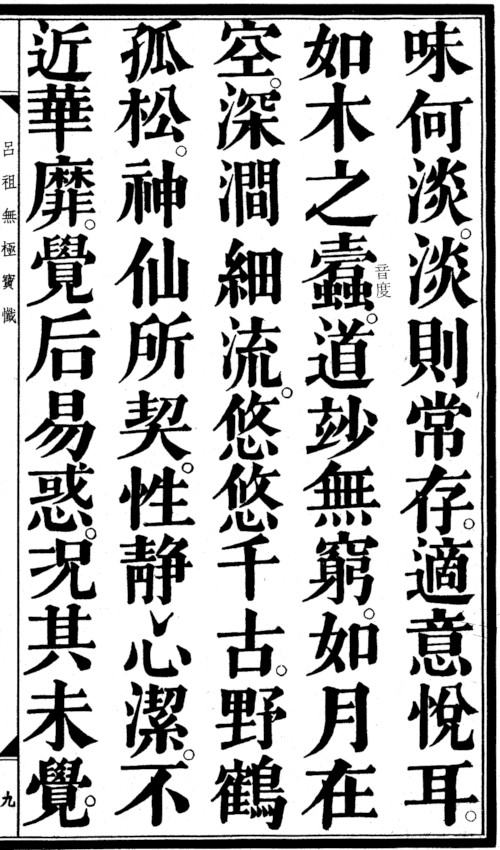 味何淡。淡則常存。適意悅耳。
如木之蠹音度。道玅無窮。如月在
空。深澗細流。悠悠千古。野鶴
孤松。神仙所契。性靜心潔。不
近華靡。覺后易惑。况其未覺。
呂祖無極寶懺
九